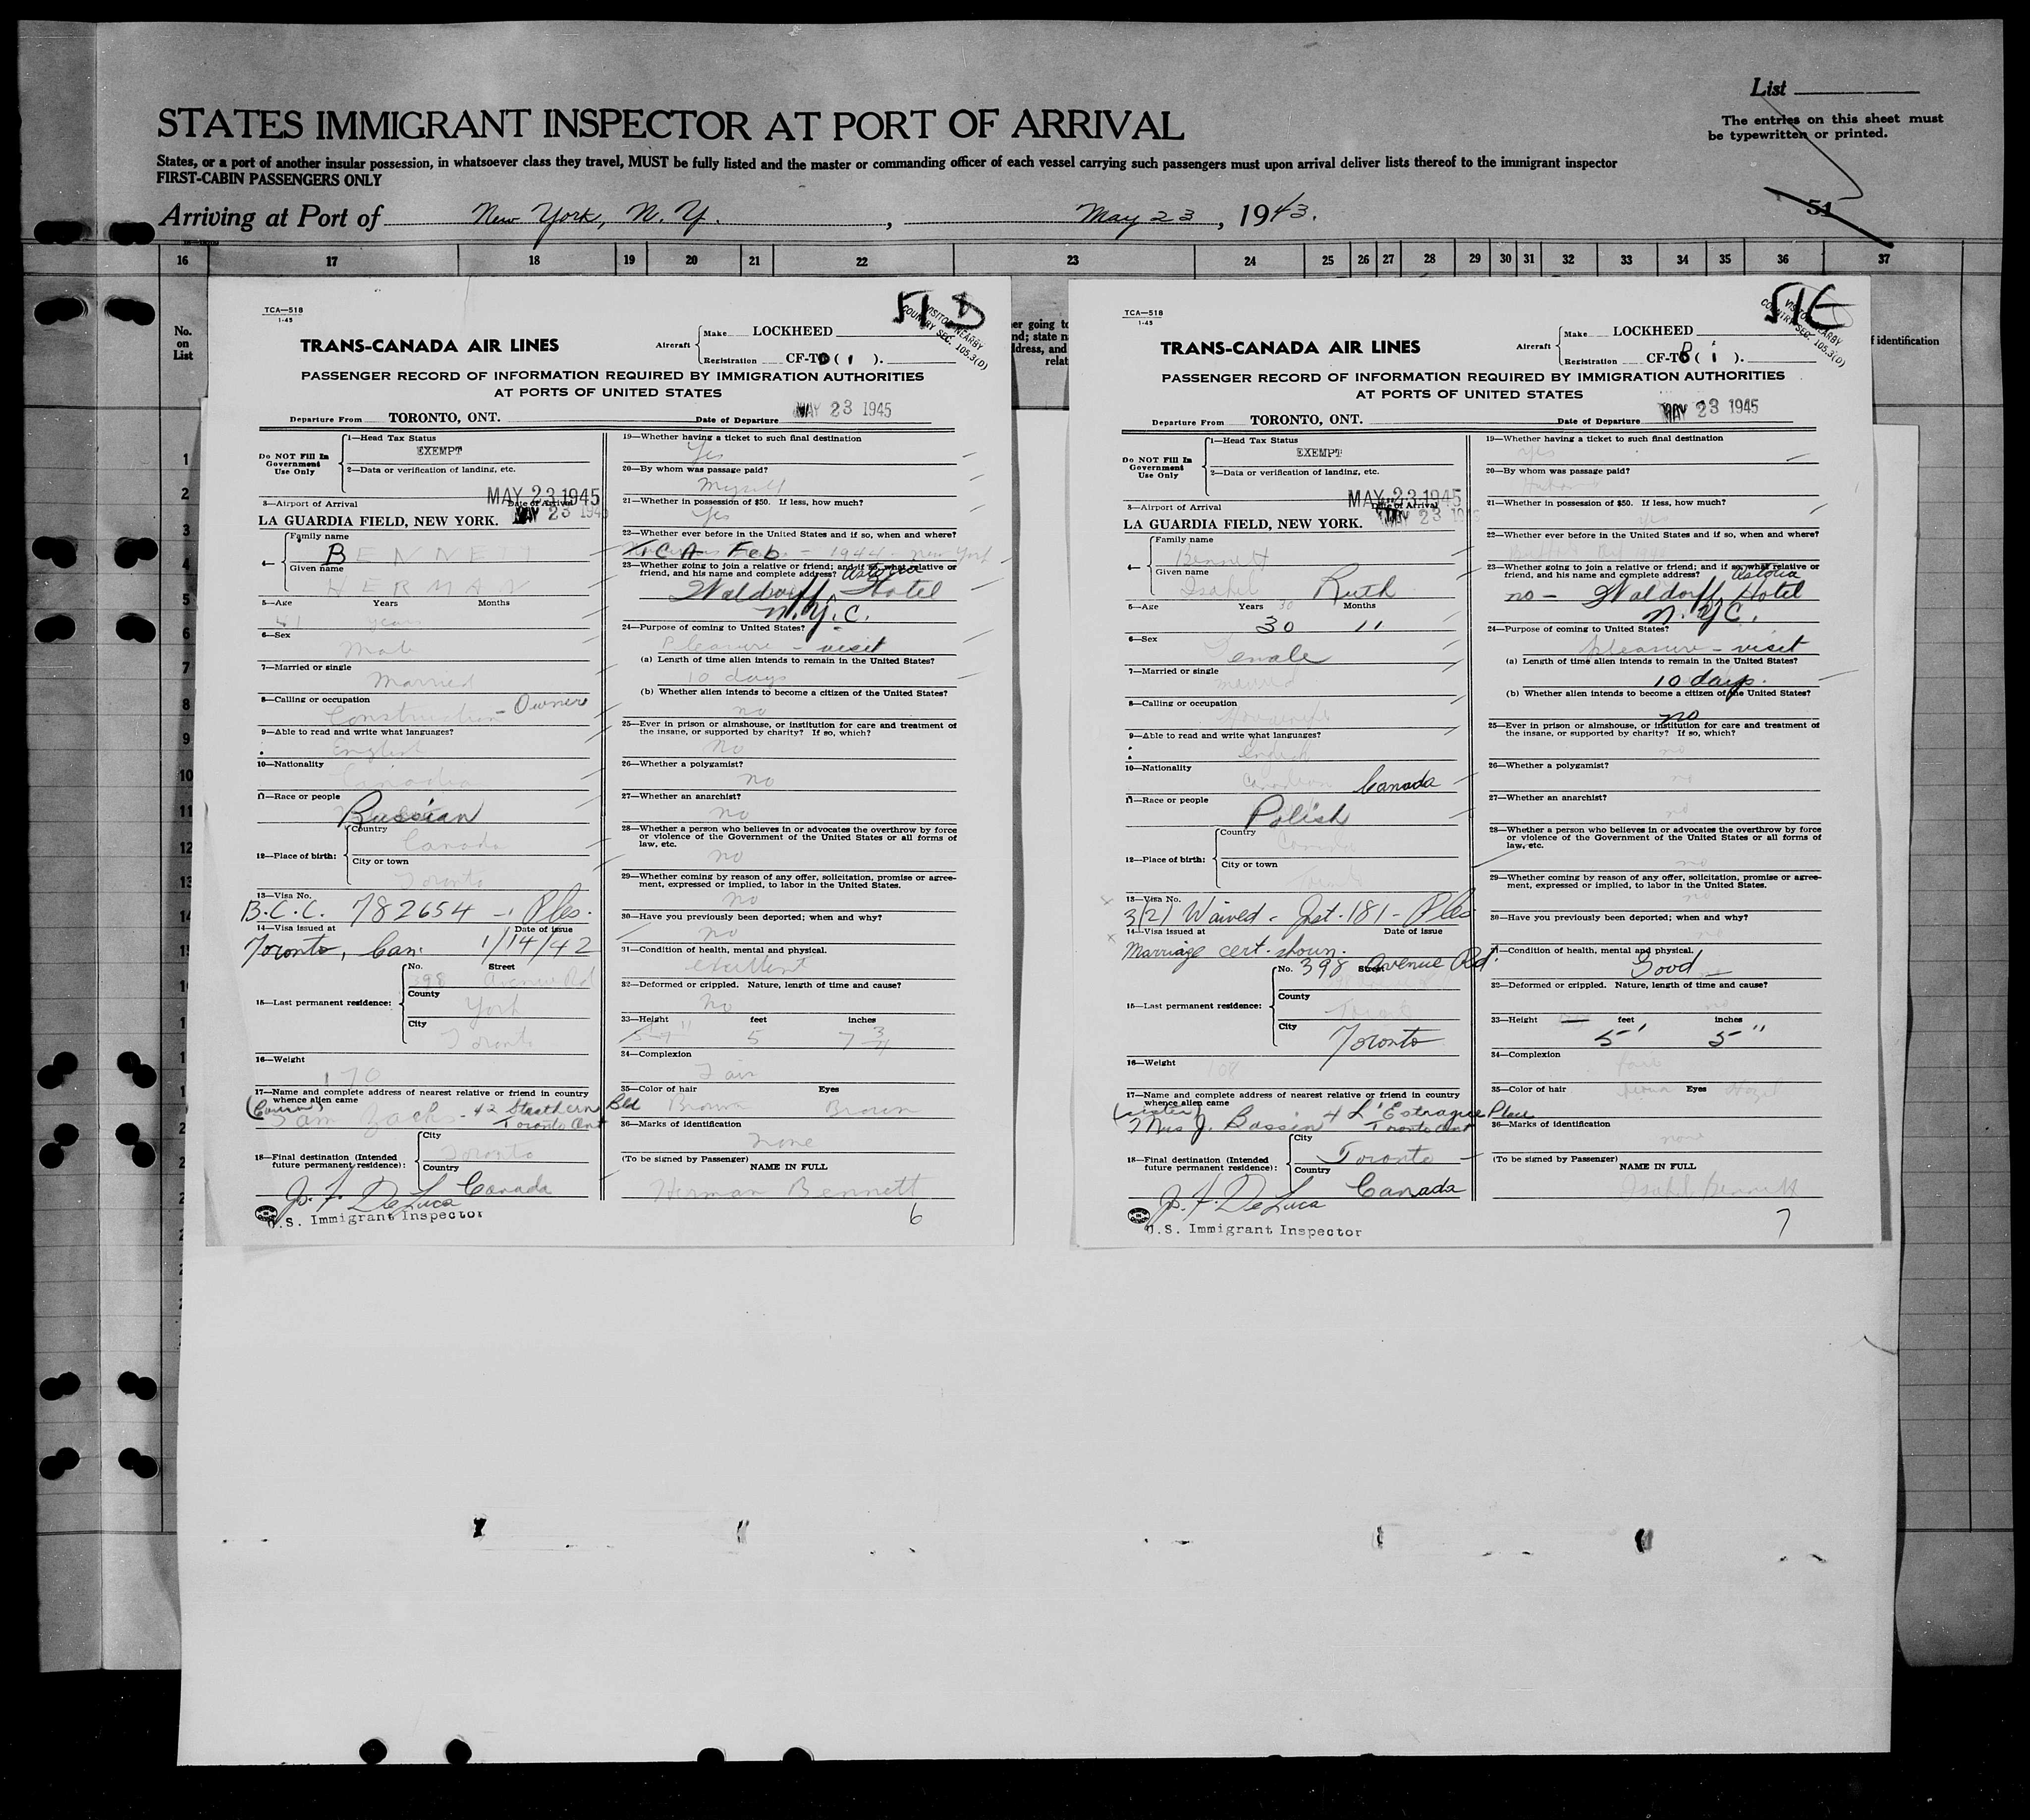 List
The entries on this sheet must
be typewritten or printed.
STATES IMMIGRANT INSPECTOR AT PORT OF ARRIVAL
States, or a port of another insular possession, in whatsoever class they travel, MUST be fully listed and the master or commanding officer of each vessel carrying such passengers must upon arrival deliver lists thereof to the immigrant inspector
FIRST-CABIN PASSENGERS ONLY
Arriving at Port of New York, N. Y., May 23, 1943.
51
16 17 18 19 20 21 22 23 24 25 26 27 28 29 30 31 32 33 34 35 36 37
No.
on
List
1
2
3
4
5
6
7
8
9
10
11
12
13
14
15
TCA—518
1-45
51 D
VISITOR NEARBY
COUNTRY SEC. 105.3(D)
TRANS-CANADA AIR LINES
Aircraft
Make LOCKHEED
Registration CF-T
PASSENGER RECORD OF INFORMATION REQUIRED BY IMMIGRATION AUTHORITIES
AT PORTS OF UNITED STATES
Departure From TORONTO, ONT. Date of Departure MAY 23 1945
Do NOT Fill In
Government
Use Only
1—Head Tax Status
EXEMPT
2—Data or verification of landing, etc.
3—Airport of Arrival Date of Arrival
MAY 23 1945
LA GUARDIA FIELD, NEW YORK. MAY 23 1945
4— Family name
BENNETT
Given name
HERMAN
5—Age Years Months
years
6—Sex
Male
7—Married or single
Married
8—Calling or occupation
Construction - Owner
9—Able to read and write what languages?
English
10—Nationality
Canadian
11—Race or people
Russian
12—Place of birth:
Country
Canada
City or town
Toronto
13—Visa No.
B.C.C. 782654 - Ples.
14—Visa issued at Date of issue
Toronto, Can. 1/14/42
15—Last permanent residence:
No. Street
398 Avenue Rd
County
York
City
Toronto
16—Weight
170
17—Name and complete address of nearest relative or friend in country
whence alien came
(Cousin)
Sam Zacks - 42 Strathern Bld
Toronto Ont
18—Final destination (Intended
future permanent residence):
City
Toronto
Country
Canada
Jo. F. DeLuca
U.S. Immigrant Inspector
19—Whether having a ticket to such final destination
Yes
20—By whom was passage paid?
Myself
21—Whether in possession of $50. If less, how much?
Yes
22—Whether ever before in the United States and if so, when and where?
T.C.A Feb. - 1944 - New York
23—Whether going to join a relative or friend; and if so, what relative or
friend, and his name and complete address?
Waldorff Astoria Hotel
N.Y.C.
24—Purpose of coming to United States?
Pleasure - visit
(a) Length of time alien intends to remain in the United States?
10 days
(b) Whether alien intends to become a citizen of the United States?
no
25—Ever in prison or almshouse, or institution for care and treatment of
the insane, or supported by charity? If so, which?
no
26—Whether a polygamist?
no
27—Whether an anarchist?
no
28—Whether a person who believes in or advocates the overthrow by force
or violence of the Government of the United States or all forms of
law, etc.
no
29—Whether coming by reason of any offer, solicitation, promise or agree-
ment, expressed or implied, to labor in the United States.
no
30—Have you previously been deported; when and why?
no
31—Condition of health, mental and physical.
excellent
32—Deformed or crippled. Nature, length of time and cause?
No
33—Height feet inches
5 7 3/4
34—Complexion
Fair
35—Color of hair Eyes
Brown Brown
36—Marks of identification
none
(To be signed by Passenger)
NAME IN FULL
Herman Bennett
6
TCA—518
1-45
51E
VISITOR NEARBY
COUNTRY SEC. 105.3(D)
TRANS-CANADA AIR LINES
Aircraft
Make LOCKHEED
Registration CF-T
PASSENGER RECORD OF INFORMATION REQUIRED BY IMMIGRATION AUTHORITIES
AT PORTS OF UNITED STATES
Departure From TORONTO, ONT. Date of Departure MAY 23 1945
Do NOT Fill In
Government
Use Only
1—Head Tax Status
EXEMPT
2—Data or verification of landing, etc.
3—Airport of Arrival Date of Arrival
MAY 23 1945
LA GUARDIA FIELD, NEW YORK. MAY 23 1945
4— Family name
Bennett
Given name
Isabel Ruth
5—Age Years Months
30 11
6—Sex
Female
7—Married or single
married
8—Calling or occupation
Housewife
9—Able to read and write what languages?
English
10—Nationality
Canadian Canada
11—Race or people
Polish
12—Place of birth:
Country
Canada
City or town
Toronto
13—Visa No.
3(2) Waived - Inst. 181 - Ples
14—Visa issued at Date of issue
Marriage cert. shown.
15—Last permanent residence:
No. Street
398 Avenue Rd.
County
City
Toronto
16—Weight
108
17—Name and complete address of nearest relative or friend in country
whence alien came
(sister)
Mrs J. Bassin 4 L'Estrange Place
Toronto Ont
18—Final destination (Intended
future permanent residence):
City
Toronto
Country
Canada
Jo. F. DeLuca
U.S. Immigrant Inspector
19—Whether having a ticket to such final destination
Yes
20—By whom was passage paid?
Husband
21—Whether in possession of $50. If less, how much?
yes
22—Whether ever before in the United States and if so, when and where?
23—Whether going to join a relative or friend; and if so, what relative or
friend, and his name and complete address?
no - Waldorff Astoria Hotel
N.Y.C.
24—Purpose of coming to United States?
pleasure - visit
(a) Length of time alien intends to remain in the United States?
10 days.
(b) Whether alien intends to become a citizen of the United States?
no
25—Ever in prison or almshouse, or institution for care and treatment of
the insane, or supported by charity? If so, which?
no
26—Whether a polygamist?
no
27—Whether an anarchist?
no
28—Whether a person who believes in or advocates the overthrow by force
or violence of the Government of the United States or all forms of
law, etc.
no
29—Whether coming by reason of any offer, solicitation, promise or agree-
ment, expressed or implied, to labor in the United States.
no
30—Have you previously been deported; when and why?
no
31—Condition of health, mental and physical.
Good
32—Deformed or crippled. Nature, length of time and cause?
no
33—Height feet inches
5' 5"
34—Complexion
fair
35—Color of hair Eyes
Hazel
36—Marks of identification
none
(To be signed by Passenger)
NAME IN FULL
Isabel Bennett
7